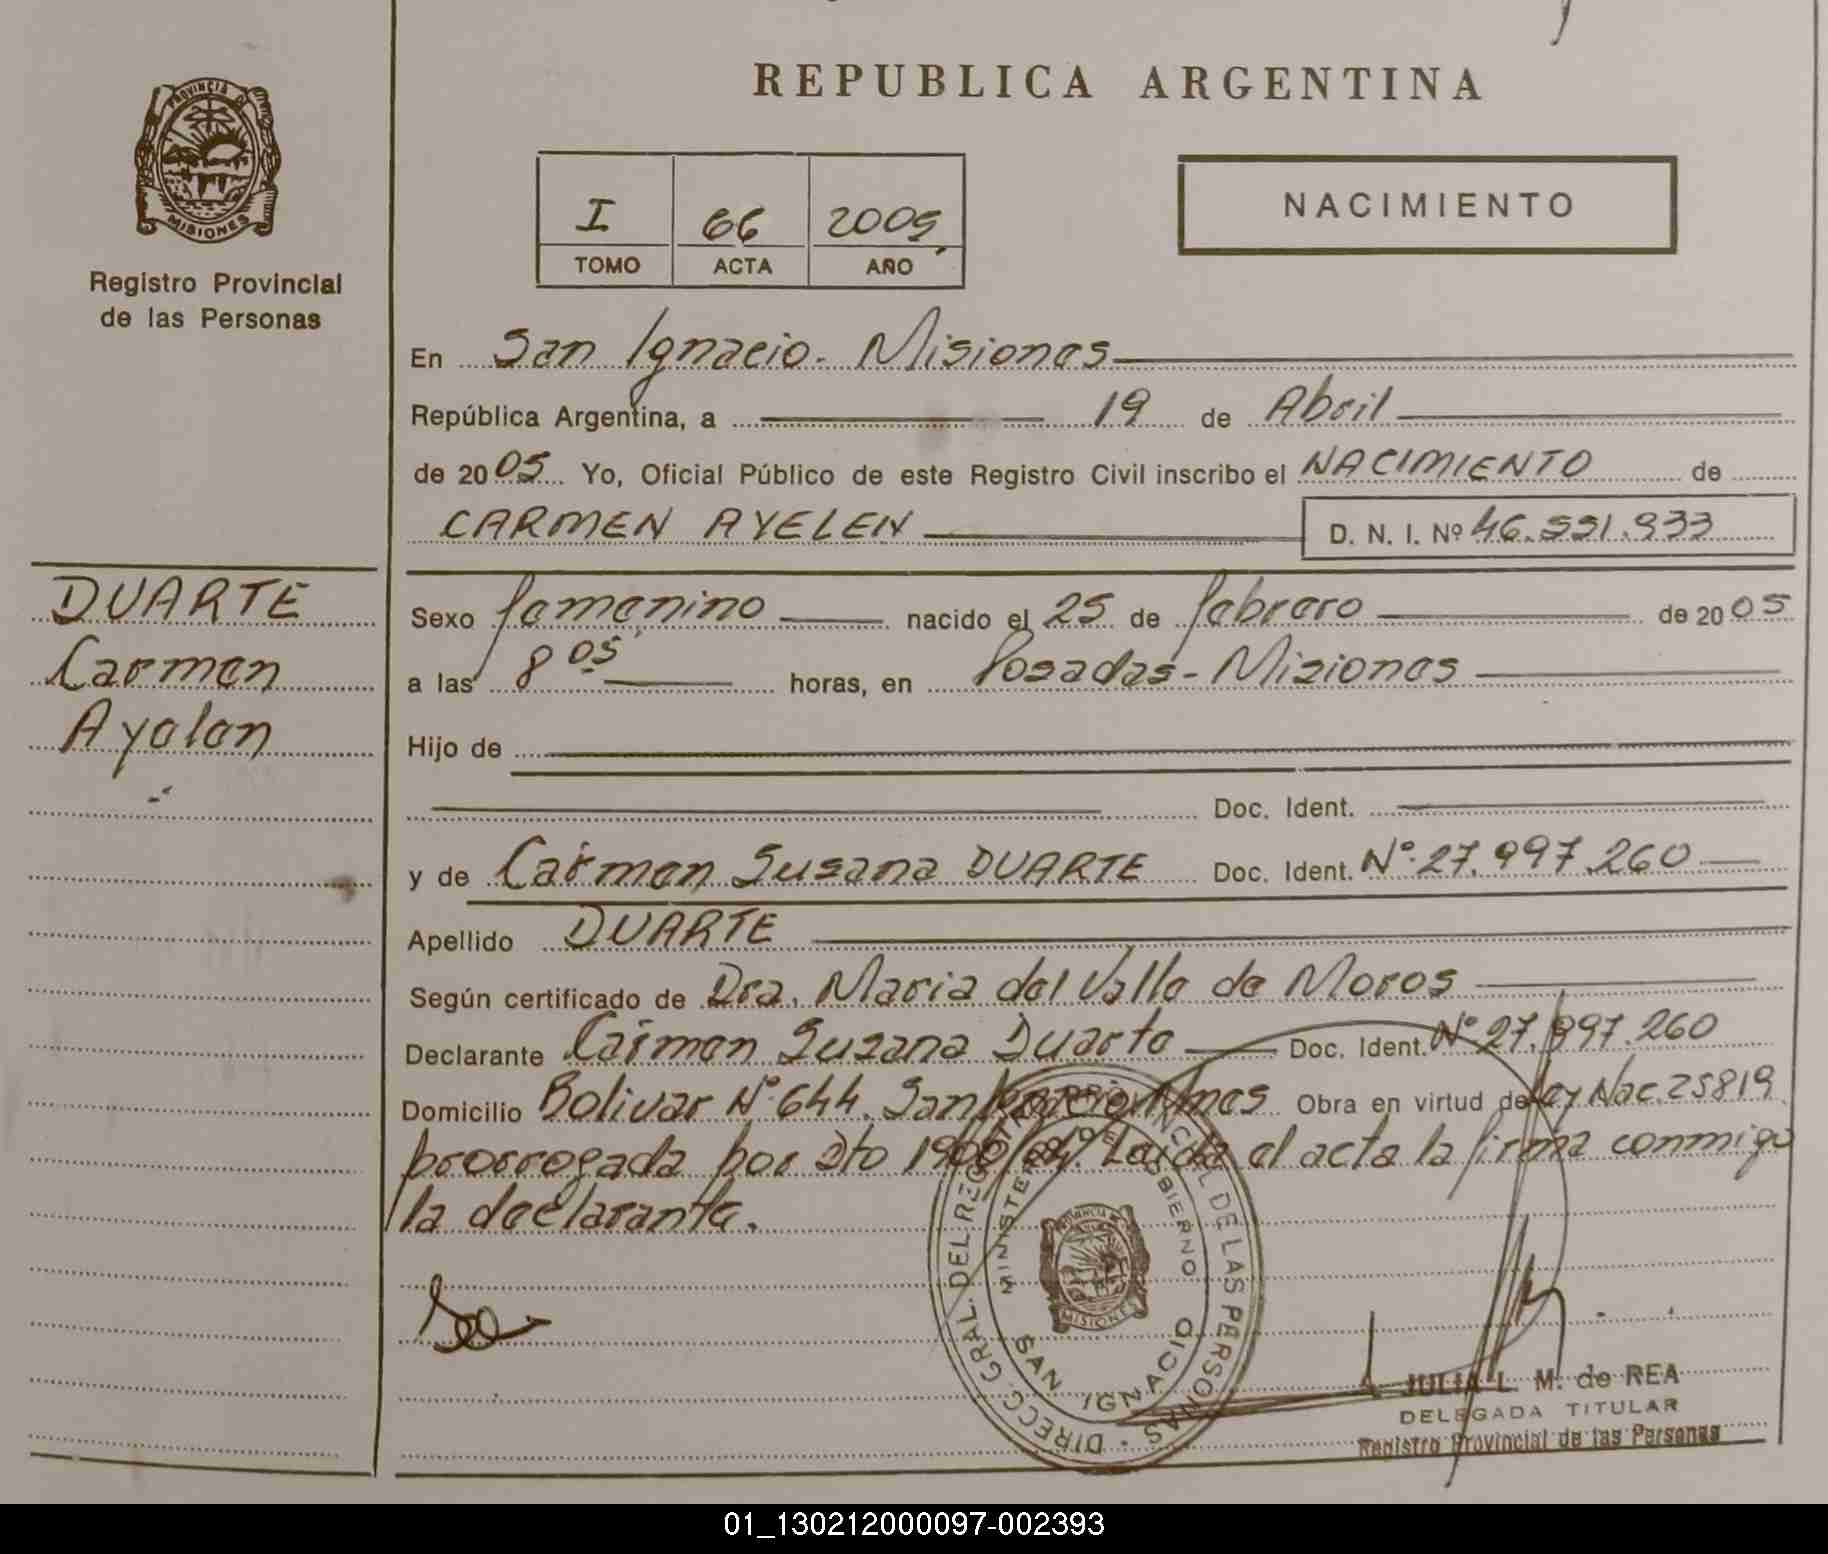 REPUBLICA ARGENTINA
PROVINCIA DE MISIONES
Registro Provincial
de las Personas
I 66 2005
TOMO ACTA AÑO
NACIMIENTO
En San Ignacio - Misiones
República Argentina, a 19 de Abril
de 2005 Yo, Oficial Público de este Registro Civil inscribo el NACIMIENTO de
CARMEN AYELEN D. N. I. Nº
DUARTE
Carmen
Ayelen
Sexo femenino nacido el 25 de febrero de 2005
a las 8 05 horas, en Posadas - Misiones
Hijo de
Doc. Ident.
y de Carmen Susana DUARTE Doc. Ident. Nº 27.997.260
Apellido DUARTE
Según certificado de Dra. Maria del Valle de Moros
Declarante Carmen Susana Duarte Doc. Ident. Nº 27.997.260
Domicilio Bolivar Nº 644. San Ignacio Mnes Obra en virtud de Ley Nac. 25819
prorrogada por Dto 1900/04. Leida el acta la firma conmigo
la declarante.
DIRECC. GRAL. DEL REGISTRO PROVINCIAL DE LAS PERSONAS
MINISTERIO DE GOBIERNO
MISIONES
SAN IGNACIO
JULIA L. M. de REA
DELEGADA TITULAR
Registro Provincial de las Personas
01_130212000097-002393